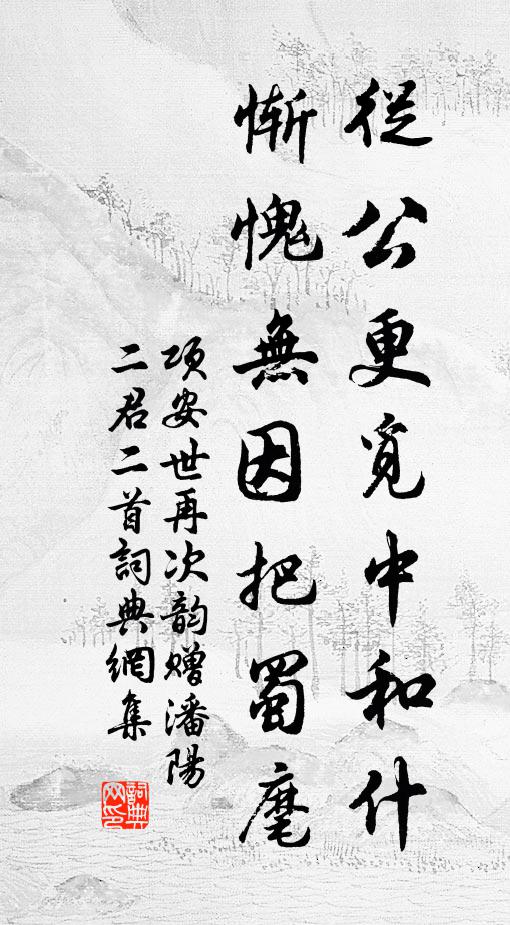 從公更覓中和什
慚愧無因把蜀麾
項安世再次韵赠潘陽
二君二首詞典網集
詞典网印